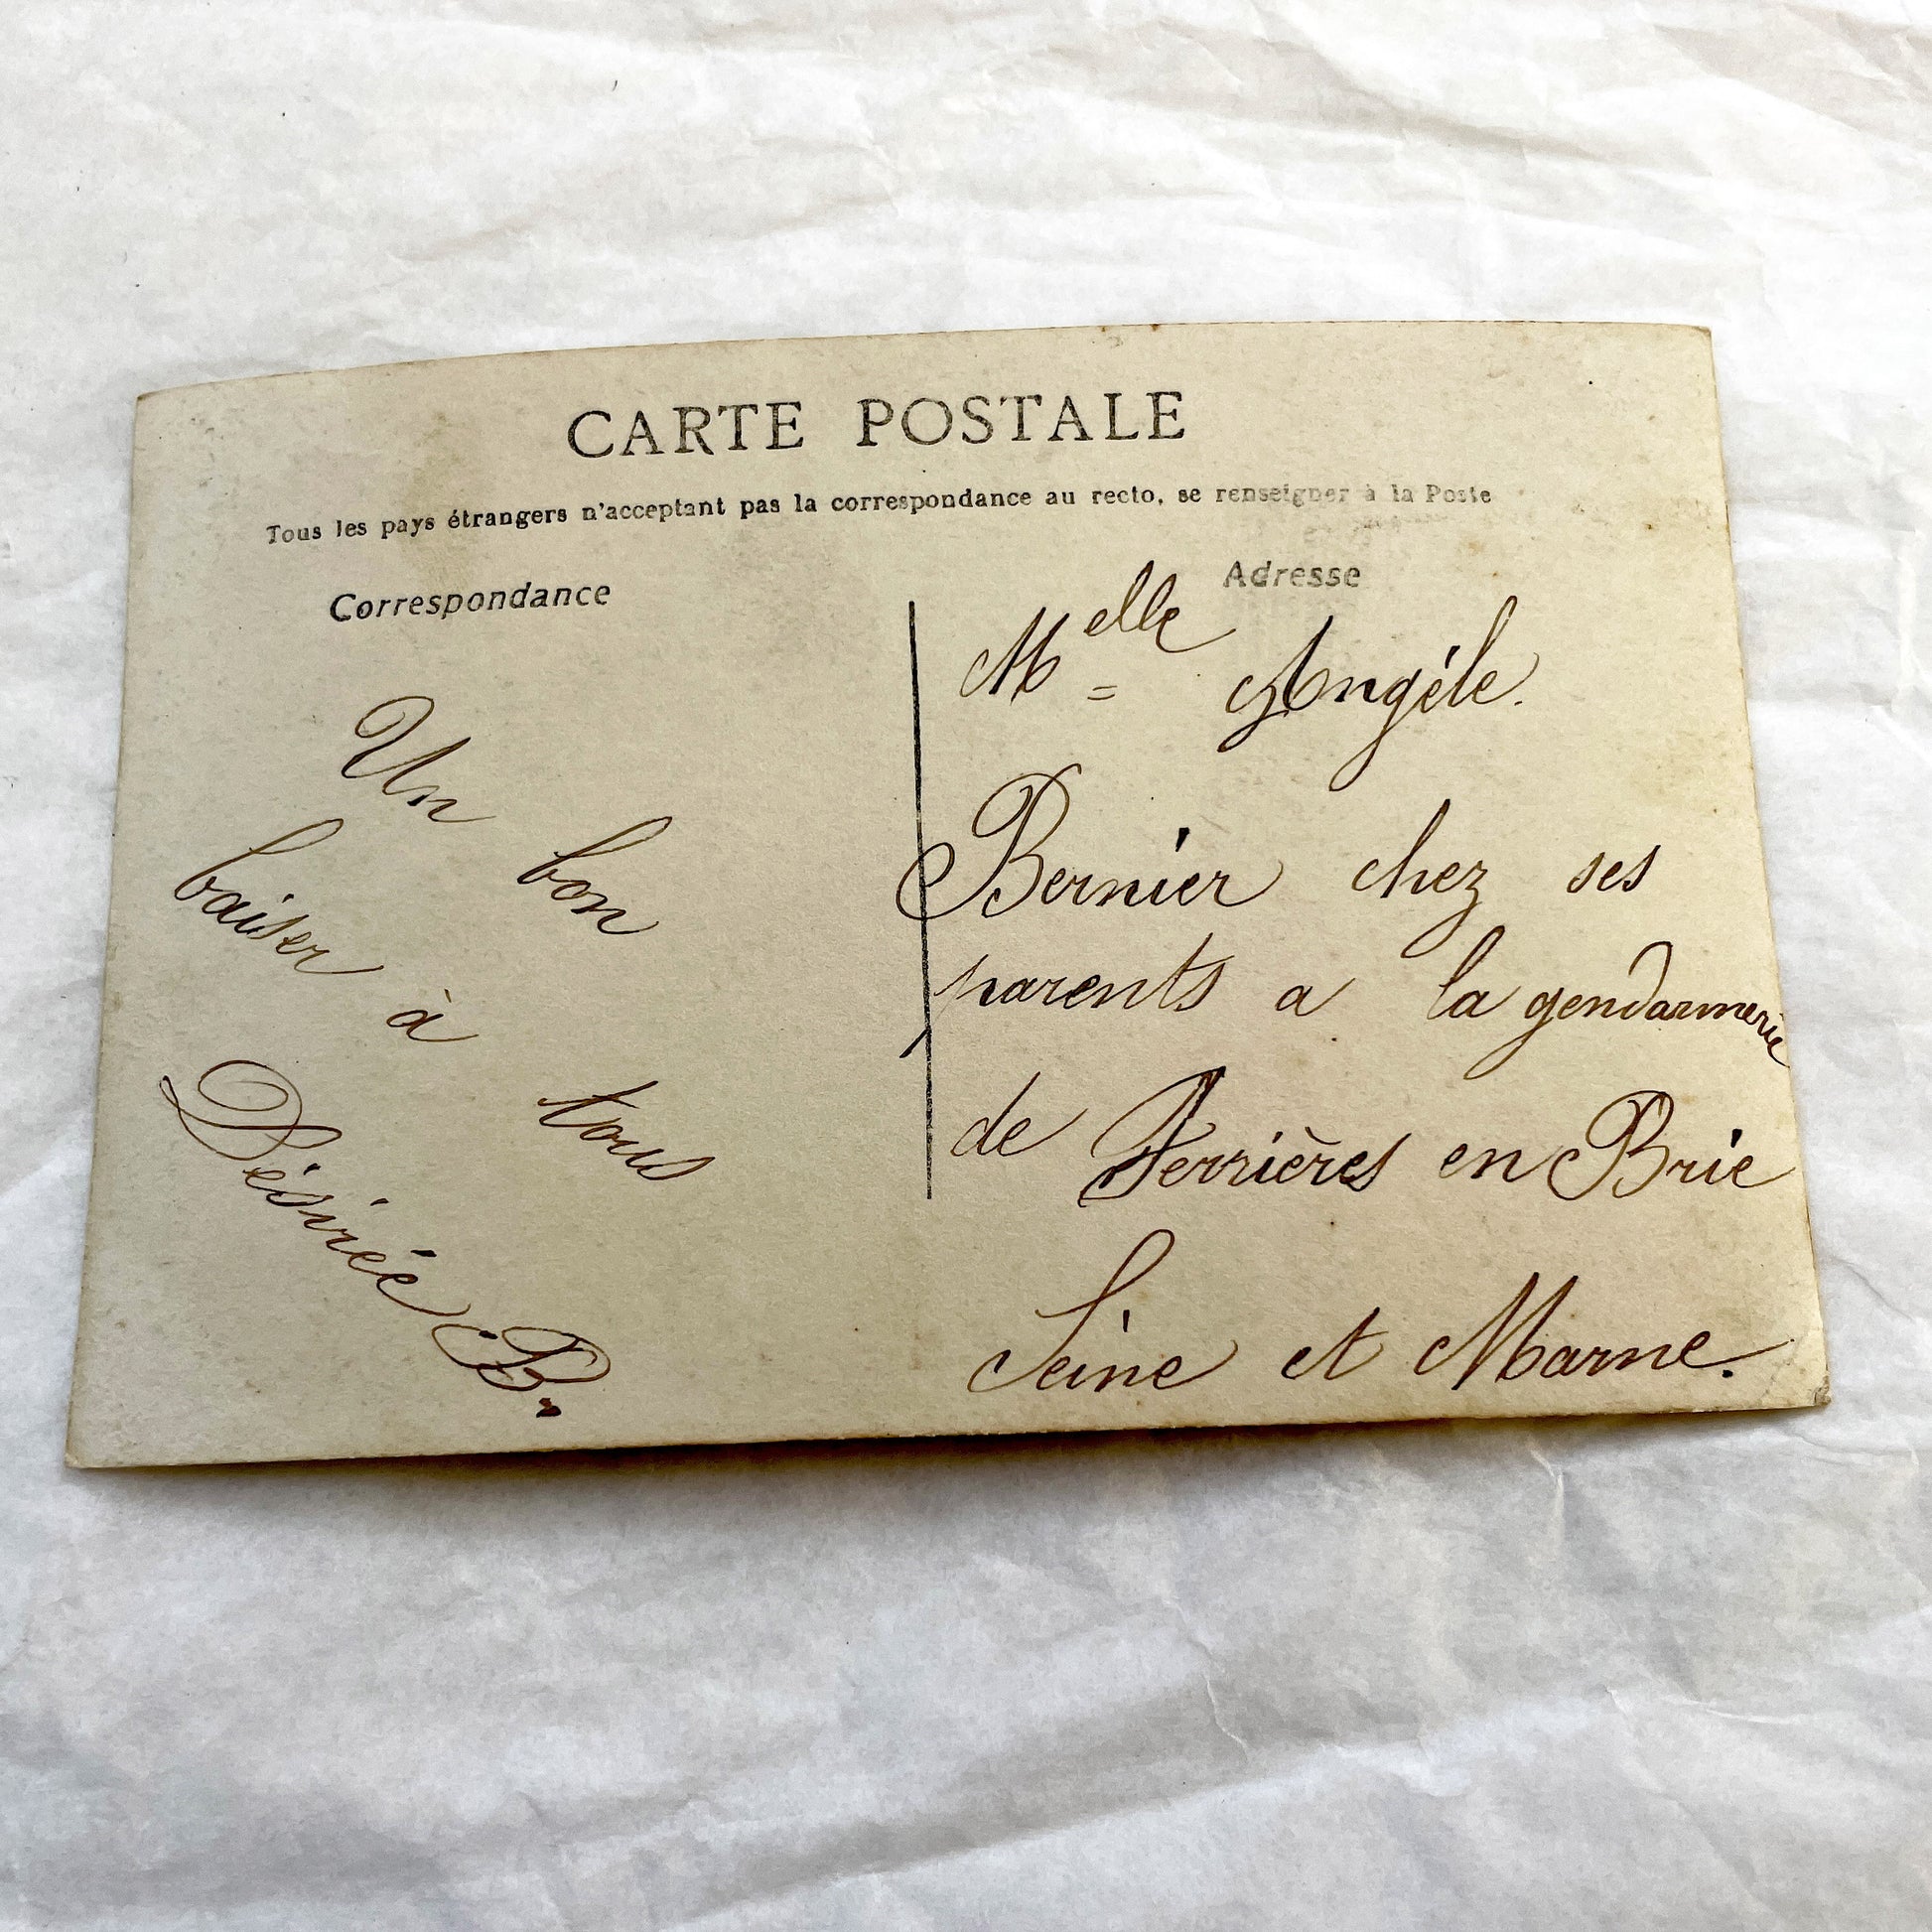 CARTE POSTALE
Tous les pays étrangers n'acceptant pas la correspondance au recto, se renseigner à la Poste
Correspondance
Un bon
baiser à tous
Désirée B.
Adresse
Melle Angèle.
Bernier chez ses
parents a la gendarmerie
de Ferrières en Brie
Seine et Marne.